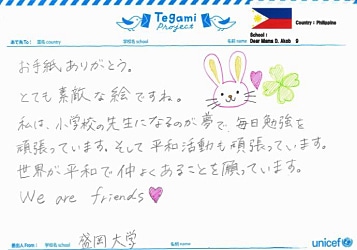 Tegami
Project
Country : Philippine
あて先To: 国名 country 学校名 school 名前 name
School :
Dear Mama D. Akab 9
お手紙ありがとう。
とても素敵な絵ですね。
私は、小学校の先生になるのが夢で、毎日勉強を
頑張っています。そして平和活動も頑張っています。
世界が平和で仲よくあることを願っています。
We are friends
差出人From : 国名 country 学校名 school 名前 name
盛岡大学
unicef